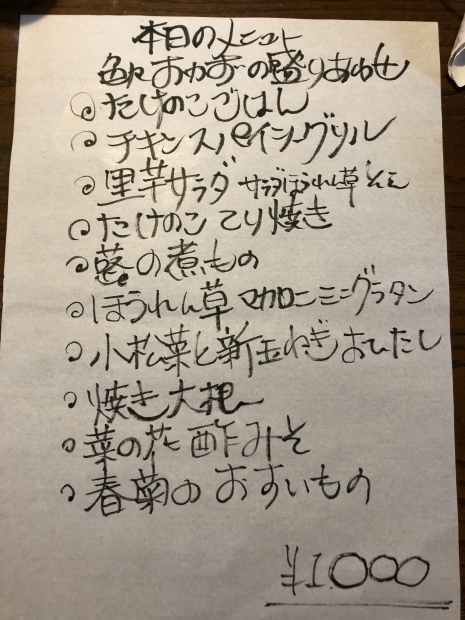 本日のメニュー
色々おかずの盛りあわせ
◎たけのこごはん
◎チキンスパイシーグリル
◎里芋サラダ サラダほうれん草そえ
◎たけのこてり焼き
◎蕗の煮もの
◎ほうれん草マカロニミニグラタン
◎小松菜と新玉ねぎおひたし
◎焼き大根
◎菜の花酢みそ
◎春菊のおすいもの
¥1000